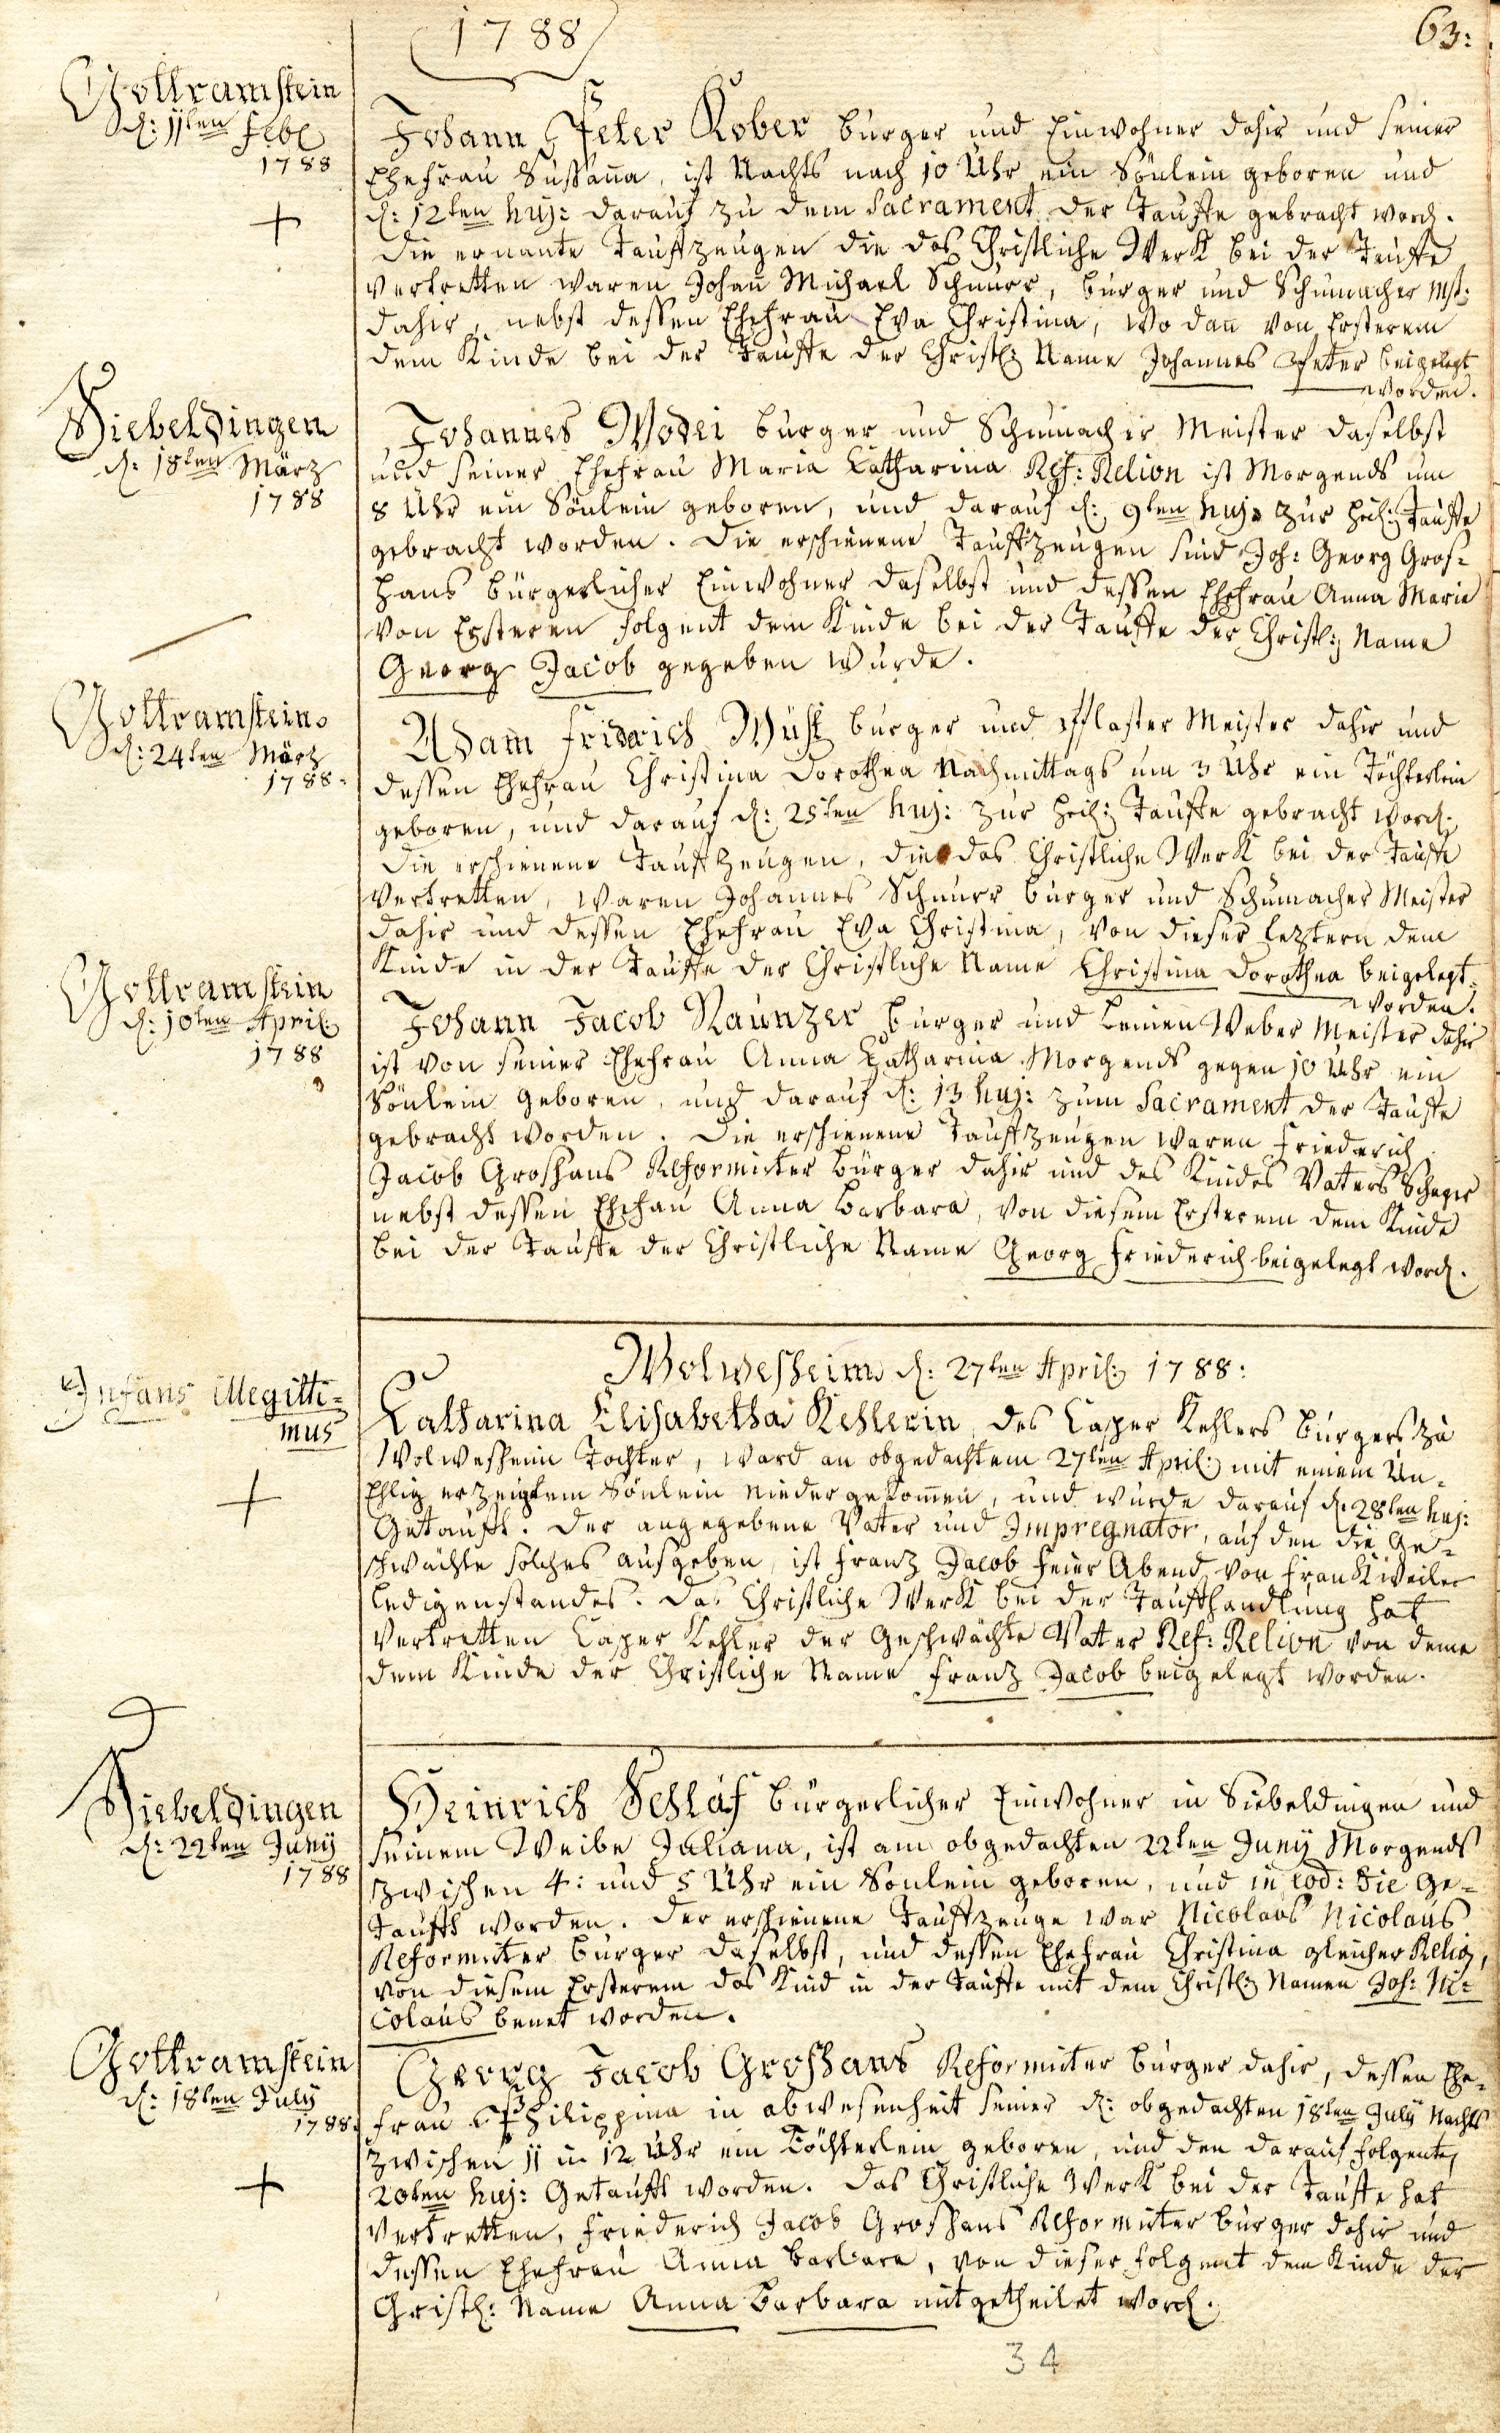 1788
63:
Gottramstein
d: 11ten Febr
1788
Johann Peter Kober burger und Einwohner dahir und seiner
Ehefrau Susana, ist Nachts nach 10 Uhr ein Sönlein geboren und
d: 12ten huj: darauf zu dem Sacrament der Tauffe gebracht word.
die ernante Tauffzeugen die das Christliche Werk bei der Tauffe
vertretten waren Johan Michael Schnurr, burger und Schumacher Mst.
dahir, nebst dessen Ehefrau Eva Christina, wo dan von Ersterem
dem Kinde bei der Tauffe der Christl: Name Johannes Peter beigelegt
worden.
Siebeldingen
d: 18ten März
1788
Johannes Modei burger und Schumacher Meister daselbst
und seiner Ehefrau Maria Catharina Ref: Relion ist Morgends um
8 Uhr ein Sönlein geboren, und darauf d: 9ten huj: zur heil: Tauffe
gebracht worden. Die erschienene Tauffzeugen sind Joh: Georg Gros-
hans bürgerlicher Einwohner daselbst und dessen Ehefrau Anna Maria
von Ersteren folgent dem Kinde bei der Tauffe der Christl: Name
Georg Jacob gegeben wurde.
Gottramstein
d: 24ten März
1788
Adam Fridrich Wüst burger und Pflaster Meister dahir und
dessen Ehefrau Christina Dorothea Nachmittags um 3 Uhr ein Töchterlein
geboren, und darauf d: 25ten huj: zur heil: Tauffe gebracht word.
die erschienene Tauffzeugen, die das Christliche Werk bei der Tauffe
vertretten, waren Johannes Schnurr burger und Schumacher Meister
dahir und dessen Ehefrau Eva Christina, von dieser leztern dem
Kinde in der Tauffe der Christliche Name Christina Dorothea beigelegt
worden.
Gottramstein
d: 10ten April
1788
Johann Jacob Naunzer burger und Leinen Weber Meister dahir
ist von seiner Ehefrau Anna Catharina Morgends gegen 10 Uhr ein
Sönlein geboren, und darauf d: 13 huj: zum Sacrament der Tauffe
gebracht worden. Die erschienene Tauffzeugen waren Friederich
Jacob Groshans Reformirter Bürger dahir und des Kindes Vaters
nebst dessen Ehefrau Anna Barbara, von diesem Ersterem dem Kinde
bei der Tauffe der Christliche Name Georg Friederich beigelegt word.
Wolmesheim d: 27ten April 1788:
Infans illegitti-
mus
Catharina Elisabetha Kehlerin, des Casper Kehlers burgers zu
Wolmesheim Tochter, ward an obgedachtem 27ten April mit einem Un-
Ehlig erzeigtem Sönlein niedergekomen, und wurde darauf d: 28ten huj:
Getaufft. Der angegebene Vater und Impregnator, auf den die Ge-
schwächte solches ausgeben, ist Franz Jacob Feier Abend von Frankweiler
ledigenstandes. Das Christliche Werk bei der Tauffhandlung hat
vertretten Casper Kehler der Geschwächte Vatter Ref: Relion von deme
dem Kinde der Christliche Name Franz Jacob beigelegt worden.
Siebeldingen
d: 22ten Junij
1788
Heinrich Schlaf bürgerlicher Einwohner in Siebeldingen und
seinem Weibe Juliana, ist am obgedachten 22ten Junij Morgends
zwischen 4: und 5 Uhr ein Sonlein geboren, und in eod: die Ge-
taufft worden. Der erschienene Tauffzeuge war Nicolaus Nicolaus
Reformirter burger daselbst, und dessen Ehefrau Christina gleicher Relig,
von diesem Ersterem das Kind in der Tauffe mit dem Christl: Namen Joh: Ni-
colaus benet worden.
Gottramstein
d: 18ten July
1788.
Georg Jacob Groshans Reformirter burger dahir, dessen Ehe-
frau Philippina in abwesenheit seiner d: obgedachten 18ten July Nachts
zwischen 11 u 12 Uhr ein Töchterlein geboren, und den darauf folgente
20ten huj: Getaufft worden. Das Christliche Werk bei der Tauffe hat
vertretten, Friederich Jacob Groshans Reformirter burger dahir und
dessen Ehefrau Anna Barbara, von dieser folgent dem Kinde der
Christl: Name Anna Barbara mitgetheilet word.
34